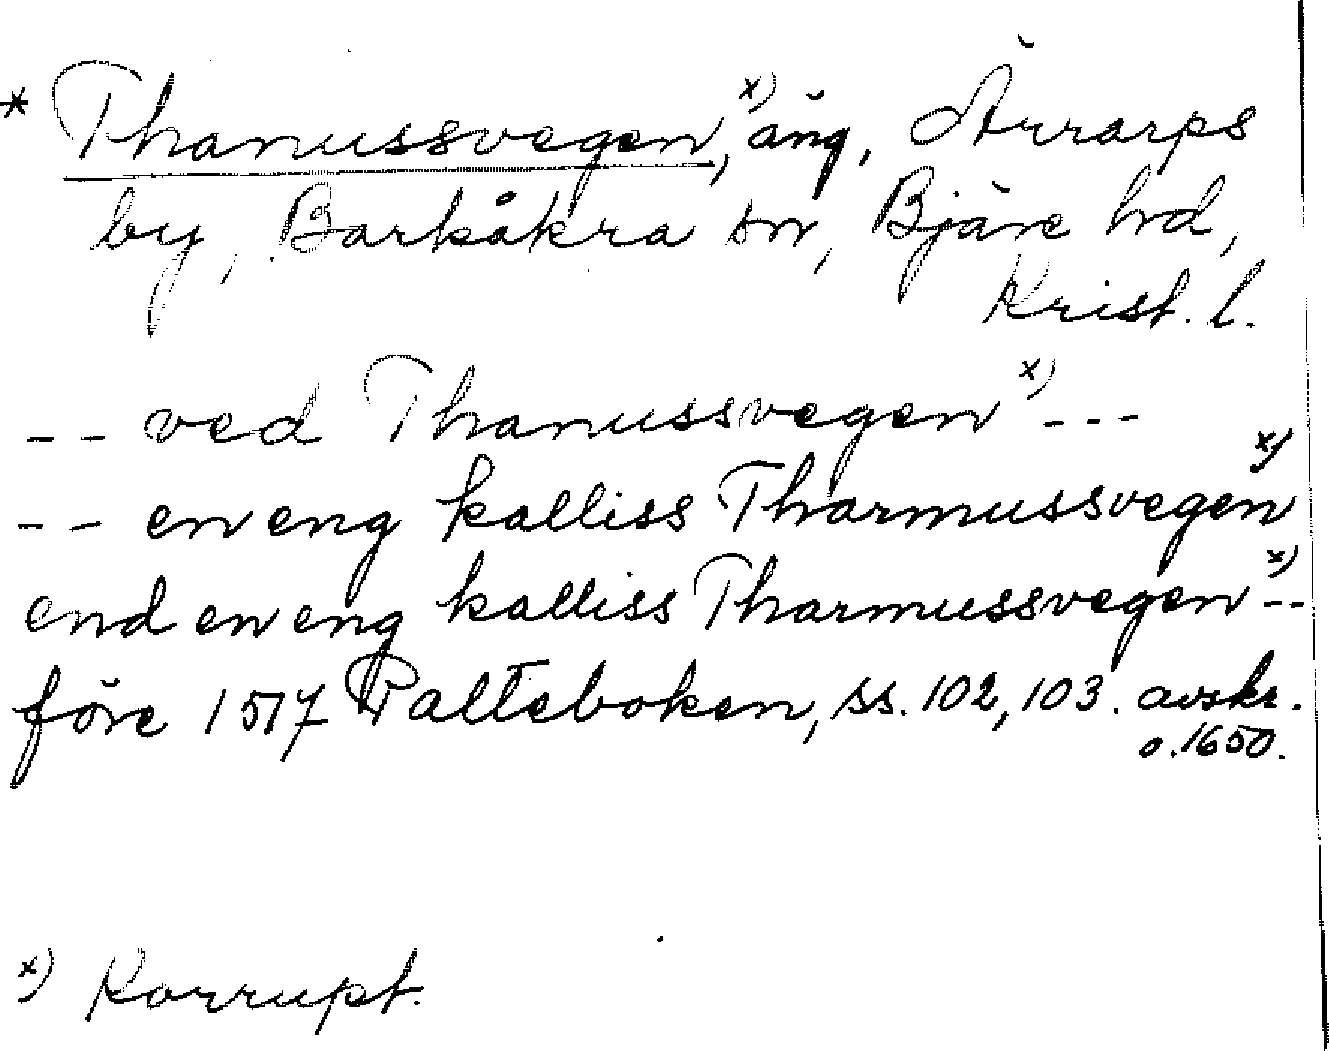 * Thanussvegen,ˣ⁾ äng, Ärrarps
by, Barkåkra sn, Bjäre hd,
Krist. l.
-- ved Thanussvegenˣ⁾ ---
-- en eng kalliss Tharmussvegenˣ⁾
end en eng kalliss Tharmussvegenˣ⁾ --
före 1517 Palteboken, ss. 102, 103. avskr.
o. 1650.
ˣ⁾ Korrupt.